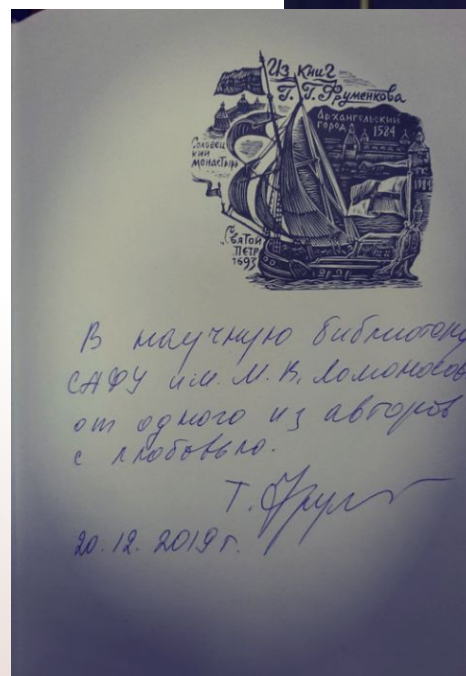 Из книг
Г. Г. Фруменкова
Архангельский
город 1584
Соловец
кий
монастырь
"Святой
Петр"
1693
В научную библиотеку
САФУ им. М. В. Ломоносова
от одного из авторов
с любовью.
Т. Фрум
20.12.2019 г.